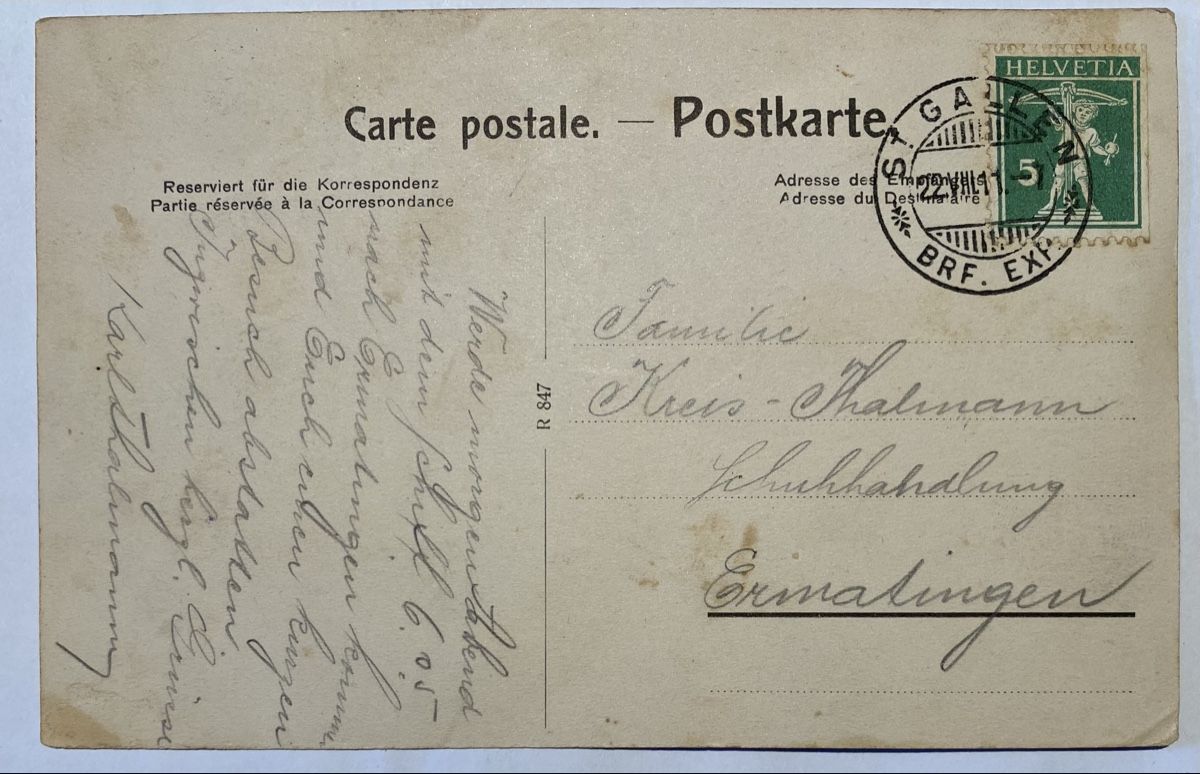 Carte postale. — Postkarte.
Reserviert für die Korrespondenz
Partie réservée à la Correspondance
Adresse des Empfängers
Adresse du Destinataire
HELVETIA
5
ST. GALLEN
22.VIII.11.–7
BRF. EXP.
Werde morgen Abend
mit dem Schiff 6.05
nach Ermatingen komme
und Euch einen kurzen
Besuch abstatten.
Inzwischen herzl. Grüsse
Karl Thalmann
R 847
Familie
Kreis-Thalmann
Schuhhandlung
Ermatingen